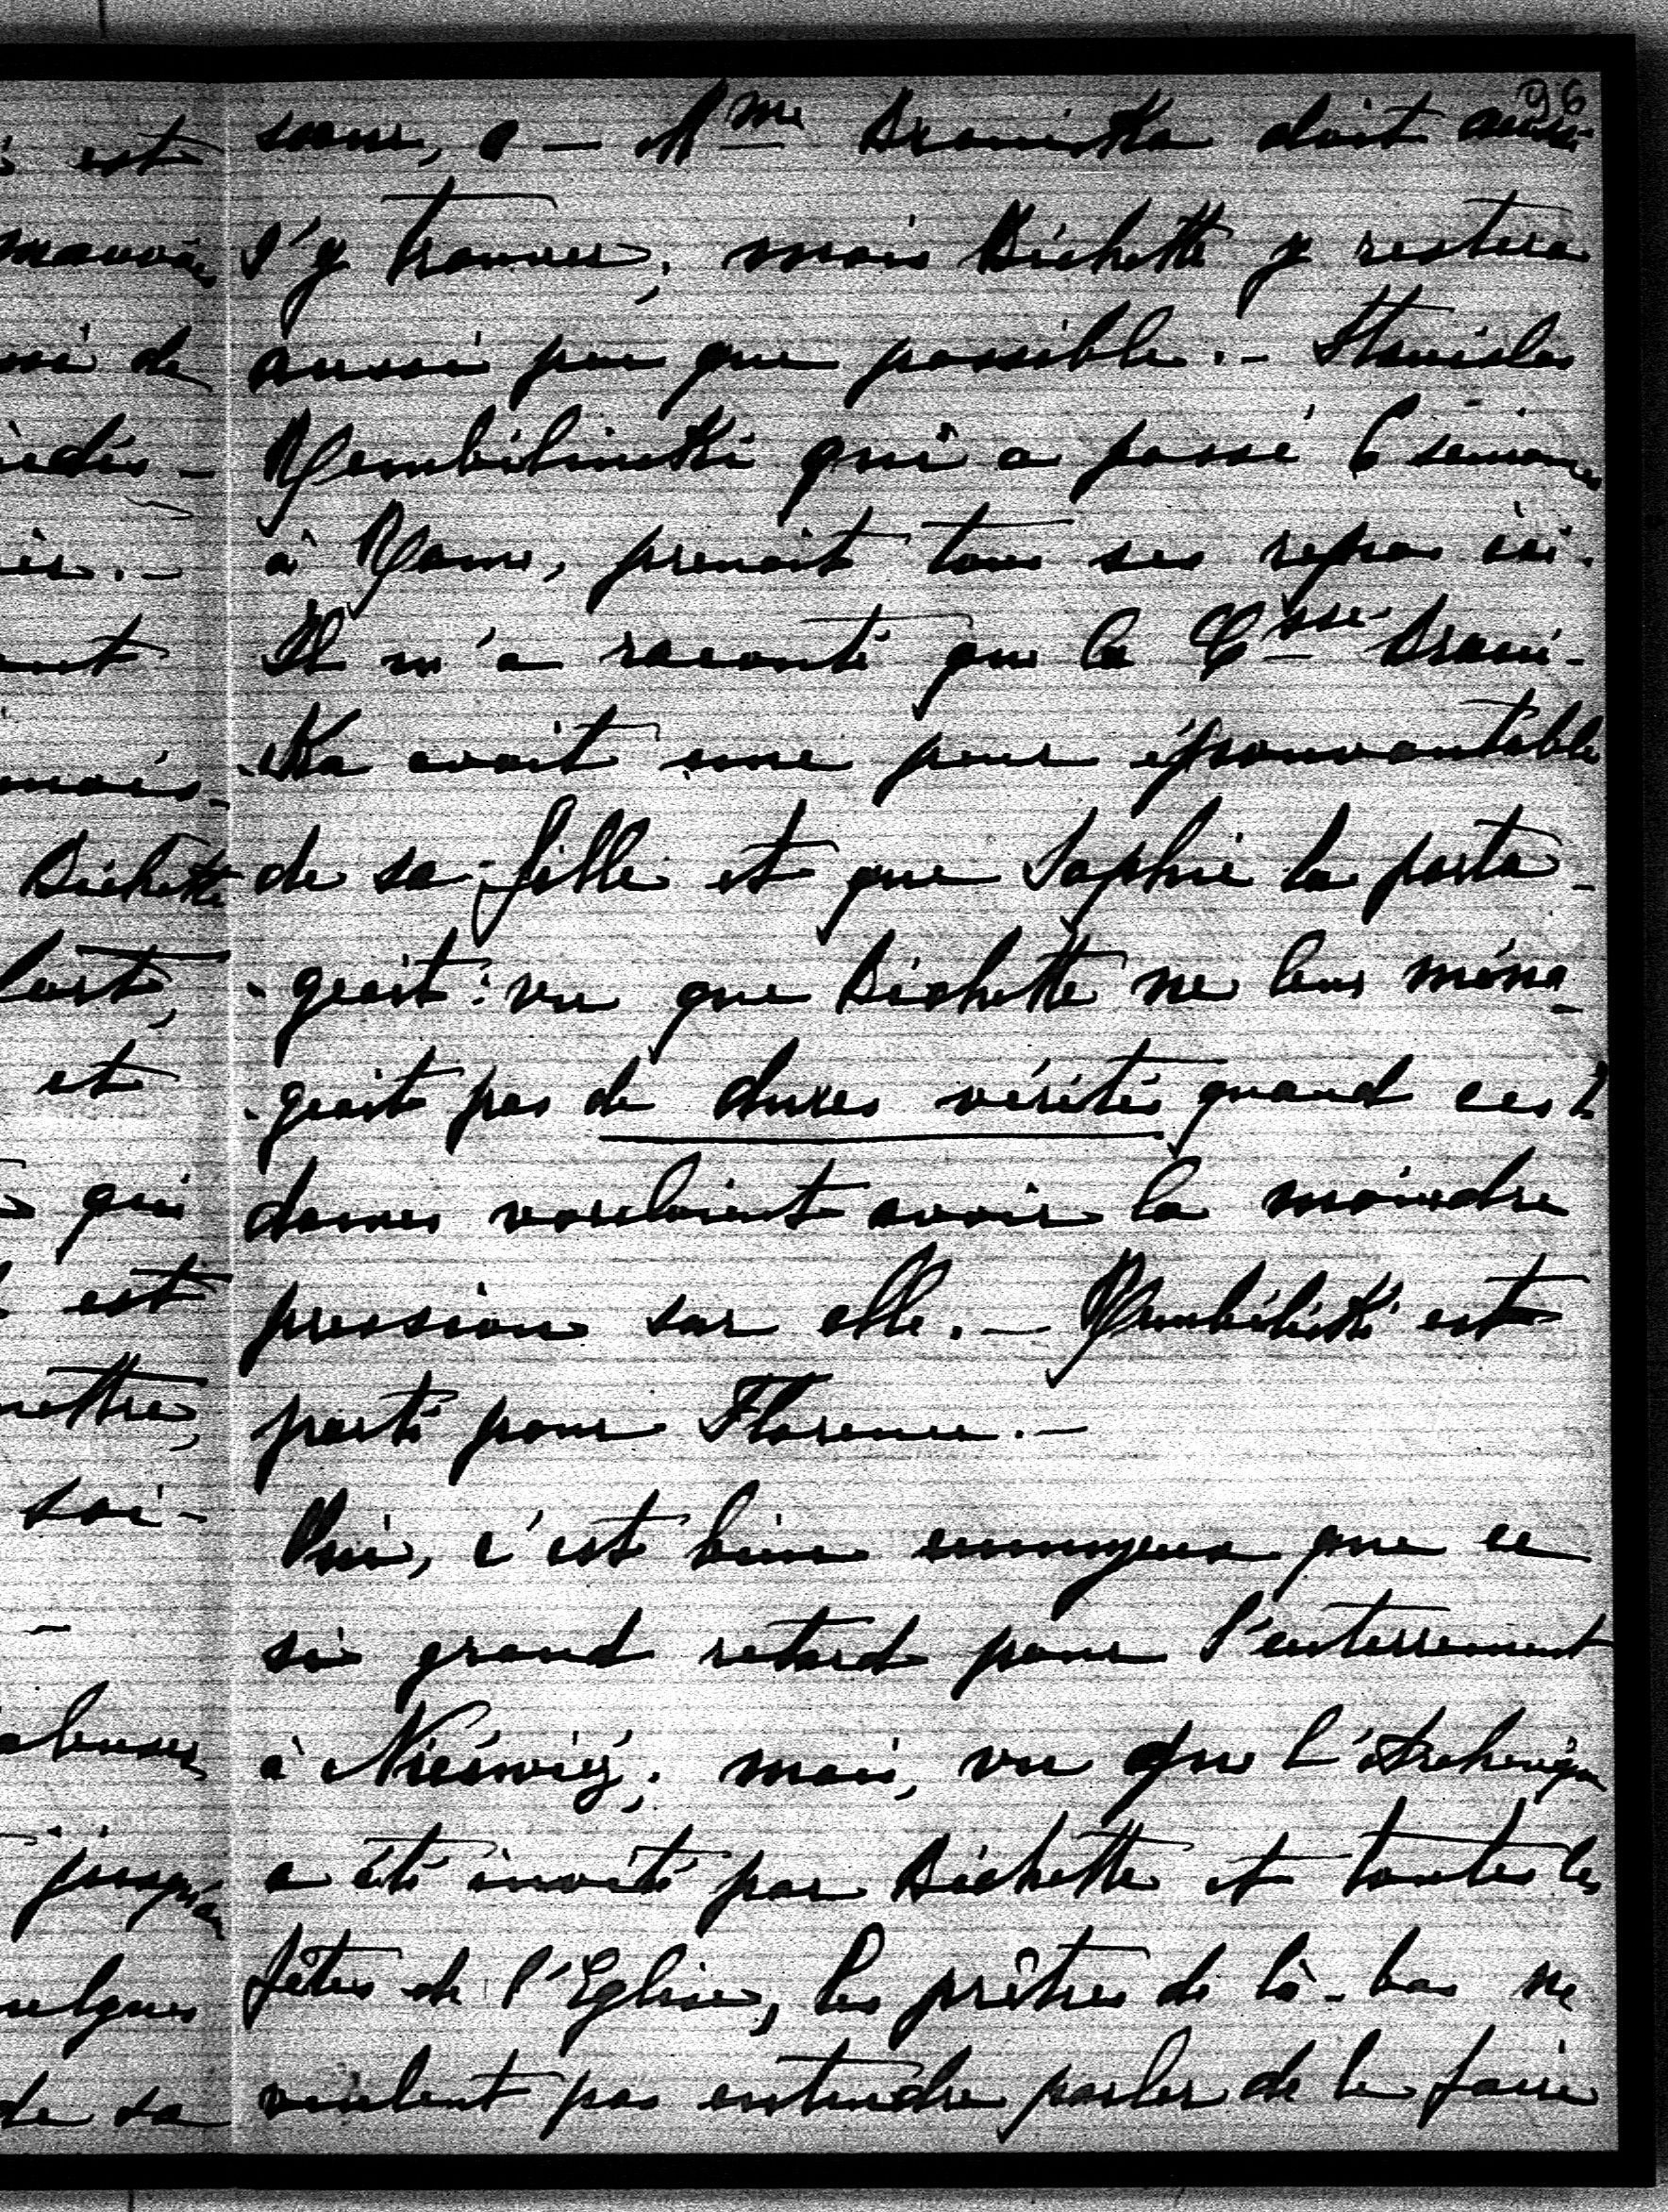 96
sœur, a — Mme Braniçka doit aussi
s'y trouver; mais Bichette y restera
aussi peu que possible. — Stanislas
Rembilinski qui a passé 6 semaines
à Rome, prenait tous ses repas ici.
Il m'a raconté que la Csse Brani-
-çka avait une peur épouvantable
de sa fille et que Sophie la parta-
-geait: vu que Bichette ne leur ména-
-geait pas de dures vérités quand ces 2
dames voulaient avoir la moindre
pression sur elle. — Rembiliski est
parti pour Florence. —
Oui, c'est bien ennuyeux que ce
si grand retard pour l'enterrement
à Nieświéz; mais, vu que l'Archevêque
a été invité par Bichette et toutes les
fêtes de l'Eglise, les prêtres de là-bas ne
veulent pas entendre parler de le faire
est
mauvais
de
Bichette
et
qui
est
soi-
jusqu'au
de sa